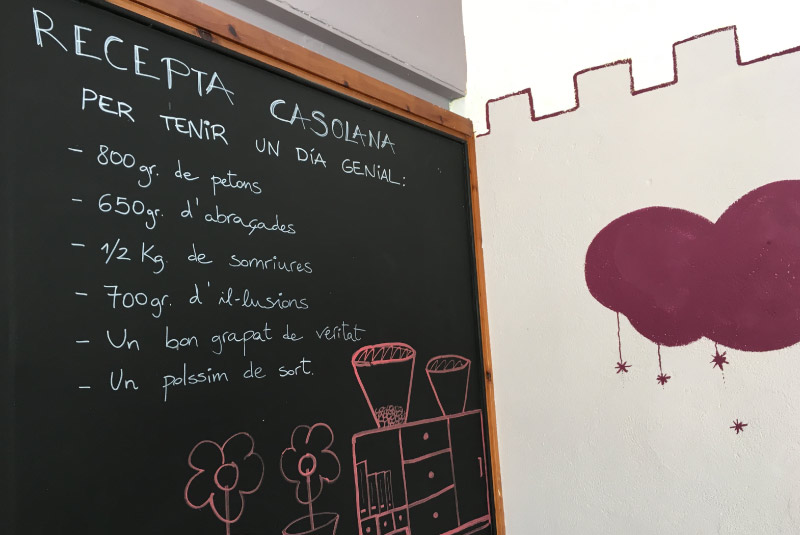 RECEPTA CASOLANA
PER TENIR UN DÍA GENIAL:
- 800gr. de petons
- 650gr. d'abraçades
- 1/2 Kg. de somriures
- 700gr. d'il·lusions
- Un bon grapat de véritat
- Un polssim de sort.